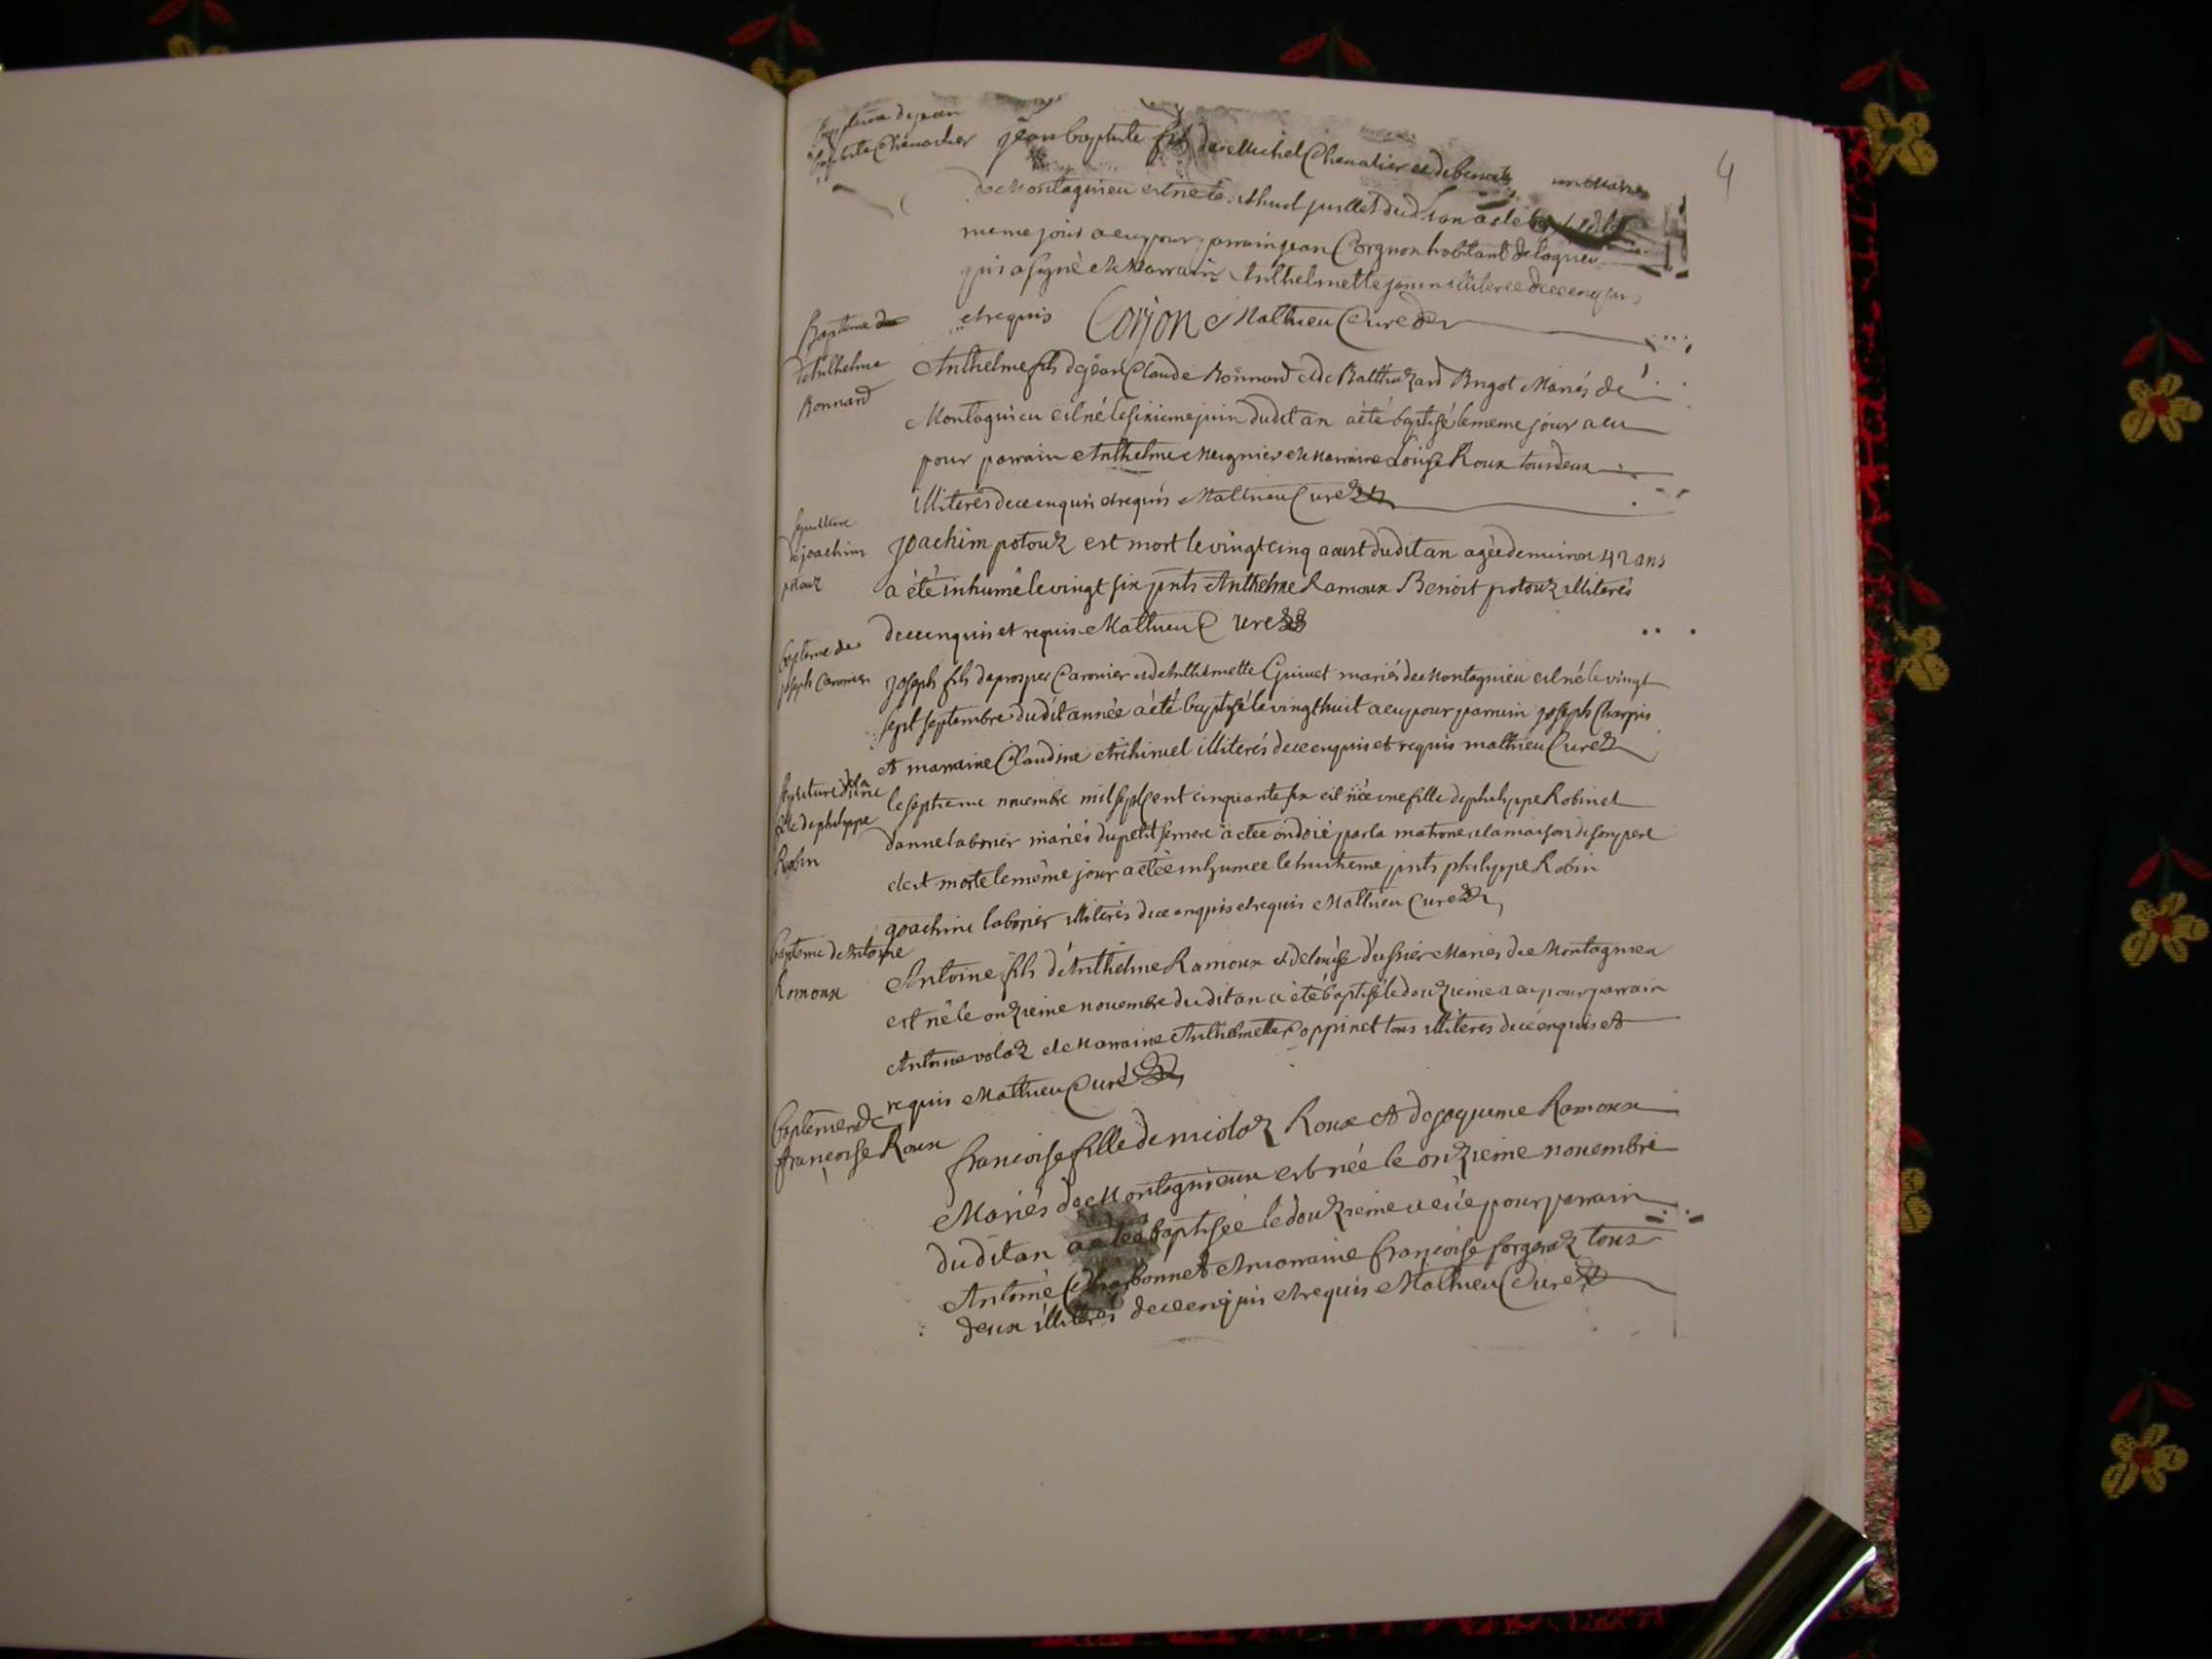 4
Bapteme de jean
baptiste Chevalier
jean baptiste fils de Michel Chevalier et de benoite mariés
de Montagnieu est né le huit juillet dud. an a été
meme jour a eu pour parrain jean Corgnon habitant de lagnieu
qui a signé et Marraine Anthelmette illiteree de ce enquis
et requis Corjon Mathieu Curé
Bapteme de
d'Anthelme
Bonnard
Anthelme fils de jean Claude Bonnard et de Balthazard Brigot Mariés de
Montagnieu est né le sixieme juin dudit an a été baptisé le meme jour a eu
pour parrain Anthelme Meugnier et Marraine Louise Roux tous deux
illiterés de ce enquis et requis Mathieu Curé
sepulture
de joachim
potouz
joachim potouz est mort le vingt cinq aoust dudit an agée d'environ 42 ans
a été inhumé le vingt six pnts Anthelme Ramoux Benoit potouz illiterés
de ce enquis et requis Mathieu Curé
bapteme de
joseph Caronier
joseph fils de prosper Caronier et d'Anthelmette Guinet mariés de Montagnieu est né le vingt
sept septembre dudit année a été baptisé le vingt huit a eu pour parrain joseph Charpin
et marraine Claudine Trihinel illiterés de ce enquis et requis mathieu Curé
sepulture d'une
fille de philyppe
Robin
le septieme novembre mil sept cent cinquante six est née une fille de philyppe Robin et
d'anne laborier mariés du petit serriere a etée ondoié par la matrone a la maison de son pere
et est morte le même jour a etée inhumee le huitieme pnts philyppe Robin
joachim laborier illiterés de ce enquis et requis Mathieu Curé
bapteme de Antoine
Romoux
Antoine fils d'Anthelme Ramoux et de louise dussier Mariés de Montagnieu
est né le onzieme novembre dudit an a été baptisé le douzieme a eu pour parrain
Antoine volaz et Marraine Anthelmette Coppinet tous illiteres de ce enquis et
requis Mathieu Curé
bapteme de
françoise Roux
françoise fille de nicolaz Roux et de jaquême Ramoux
Mariés de Montagnieux est née le onzieme novembre
dudit an a etée baptisée le douzieme a eüe pour parrain
Antoine Charbonnet et marraine françoise forgeraz tous
deux illiterés de ce enquis et requis Mathieu Curé